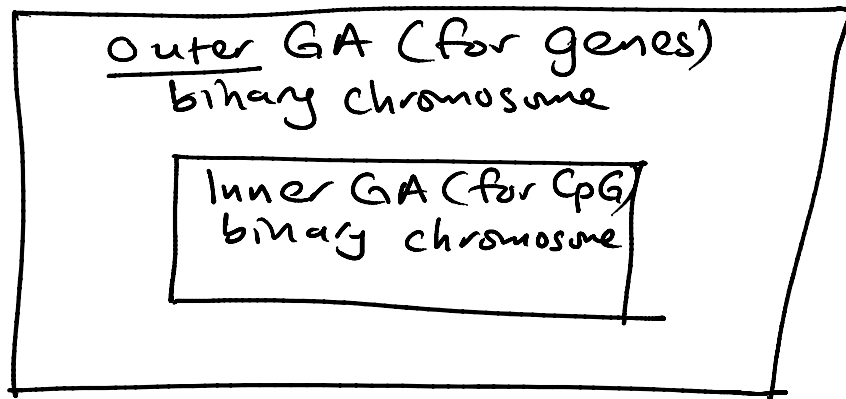 Outer GA (for genes)
binary chromosome
Inner GA (for CpG)
binary chromosome